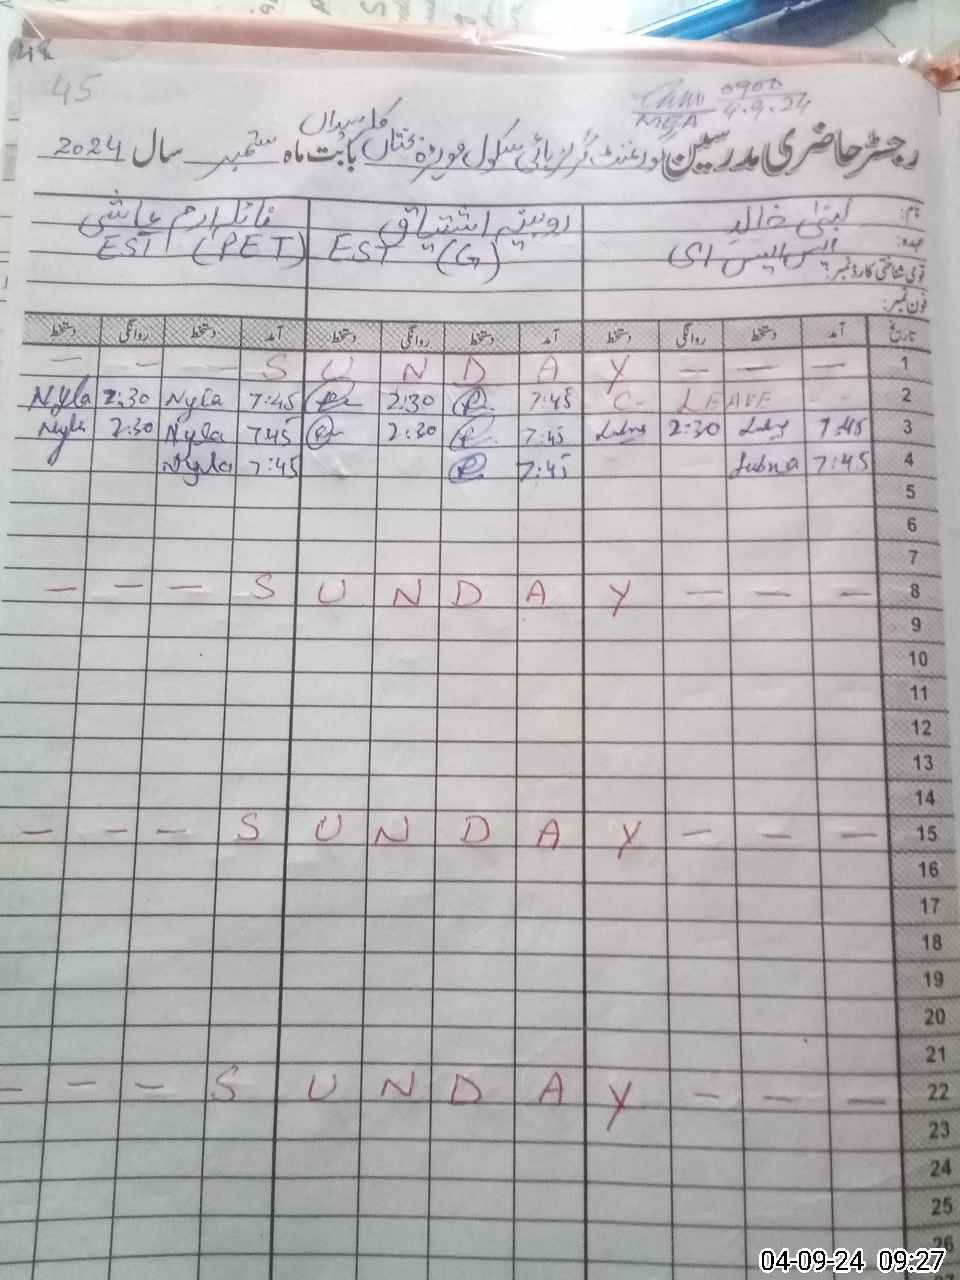 45
0900
4.9.24
MEA
رجسٹر حاضری مدرسین گورنمنٹ گرلز ہائی سکول بابت ماہ ستمبر سال 2024
نام: لبنیٰ خالد روبینہ اشتیاق نائلہ ارم عباسی
عہدہ: ایس ایس ای EST "(G)" EST (PET)
قومی شناختی کارڈ نمبر:
فون نمبر:
تاریخ آمد دستخط روانگی دستخط آمد دستخط روانگی دستخط آمد دستخط روانگی دستخط
— — — S U N D A Y — — — 1
Nyla 2:30 Nyla 7:45 2:30 7:45 C- LEAVE -- 2
Nyla 2:30 Nyla 7:45 2:30 7:45 Lubna 2:30 Lubna 7:45 3
Nyla 7:45 7:45 Lubna 7:45 4
5
6
7
— — — S U N D A Y — — — 8
9
10
11
12
13
14
— — — S U N D A Y — — — 15
16
17
18
19
20
21
— — — S U N D A Y — — — 22
23
24
25
26
04-09-24 09:27